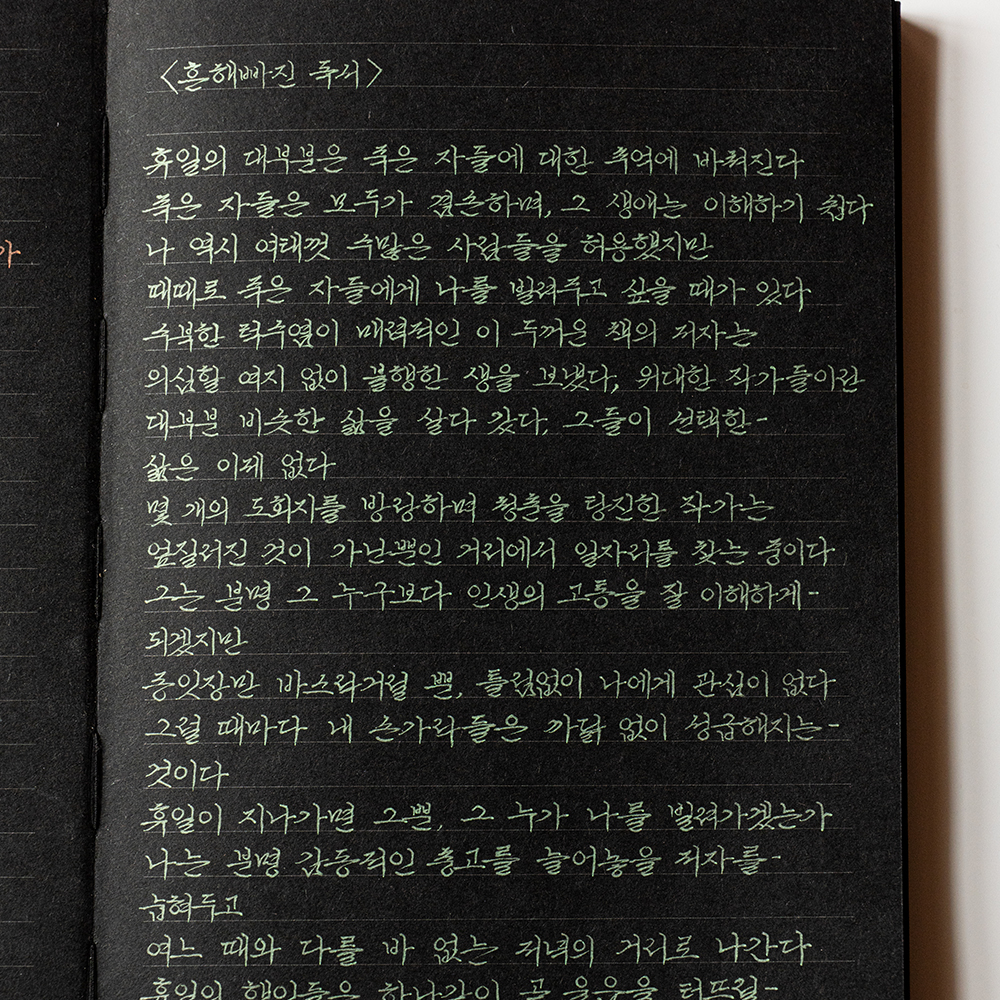 가
<흔해빠진 독서>
휴일의 대부분은 죽은 자들에 대한 추억에 바쳐진다
죽은 자들은 모두가 겸손하며, 그 생애는 이해하기 쉽다
나 역시 여태껏 수많은 사람들을 허용했지만
때때로 죽은 자들에게 나를 빌려주고 싶을 때가 있다
수북한 턱수염이 매력적인 이 두꺼운 책의 저자는
의심할 여지 없이 불행한 생을 보냈다, 위대한 작가들이란
대부분 비슷한 삶을 살다 갔다, 그들이 선택한-
삶은 이제 없다
몇 개의 도회지를 방랑하며 청춘을 탕진한 작가는
엎질러진 것이 가난뿐인 거리에서 일자리를 찾는 중이다
그는 분명 그 누구보다 인생의 고통을 잘 이해하게-
되겠지만
종잇장만 바스락거릴 뿐, 틀림없이 나에게 관심이 없다
그럴 때마다 내 손가락들은 까닭 없이 성급해지는-
것이다
휴일이 지나가면 그뿐, 그 누가 나를 빌려가겠는가
나는 분명 감동적인 충고를 늘어놓을 저자를-
눕혀두고
여느 때와 다를 바 없는 저녁의 거리로 나간다
휴일의 행인들은 하나같이 곧 울음을 터뜨릴-